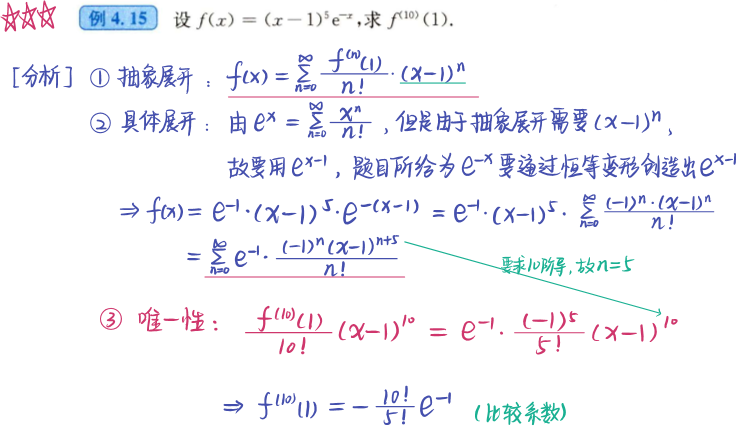 ☆☆☆ 例 4.15 设 f(x) = (x−1)⁵e⁻ˣ,求 f⁽¹⁰⁾(1).
[分析] ① 抽象展开: f(x) = ∑_{n=0}^{∞} f⁽ⁿ⁾(1)/n! · (x−1)ⁿ
② 具体展开: 由 eˣ = ∑_{n=0}^{∞} xⁿ/n! , 但是由于抽象展开需要 (x−1)ⁿ,
故要用 eˣ⁻¹, 题目所给为 e⁻ˣ 要通过恒等变形创造出 eˣ⁻¹
⇒ f(x) = e⁻¹·(x−1)⁵·e^{−(x−1)} = e⁻¹·(x−1)⁵· ∑_{n=0}^{∞} (−1)ⁿ·(x−1)ⁿ/n!
= ∑_{n=0}^{∞} e⁻¹· (−1)ⁿ(x−1)ⁿ⁺⁵/n!
要求10阶导, 故n=5
③ 唯一性: f⁽¹⁰⁾(1)/10! (x−1)¹⁰ = e⁻¹· (−1)⁵/5! (x−1)¹⁰
⇒ f⁽¹⁰⁾(1) = − 10!/5! e⁻¹ (比较系数)